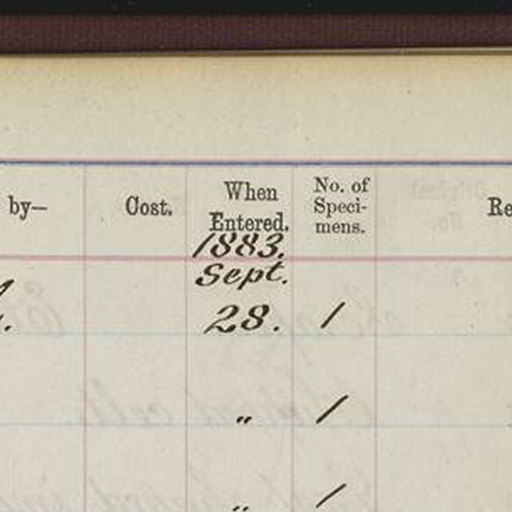 by— Cost. When Entered. No. of Speci- mens. Re
1883.
Sept.
28. /
„ /
„ /